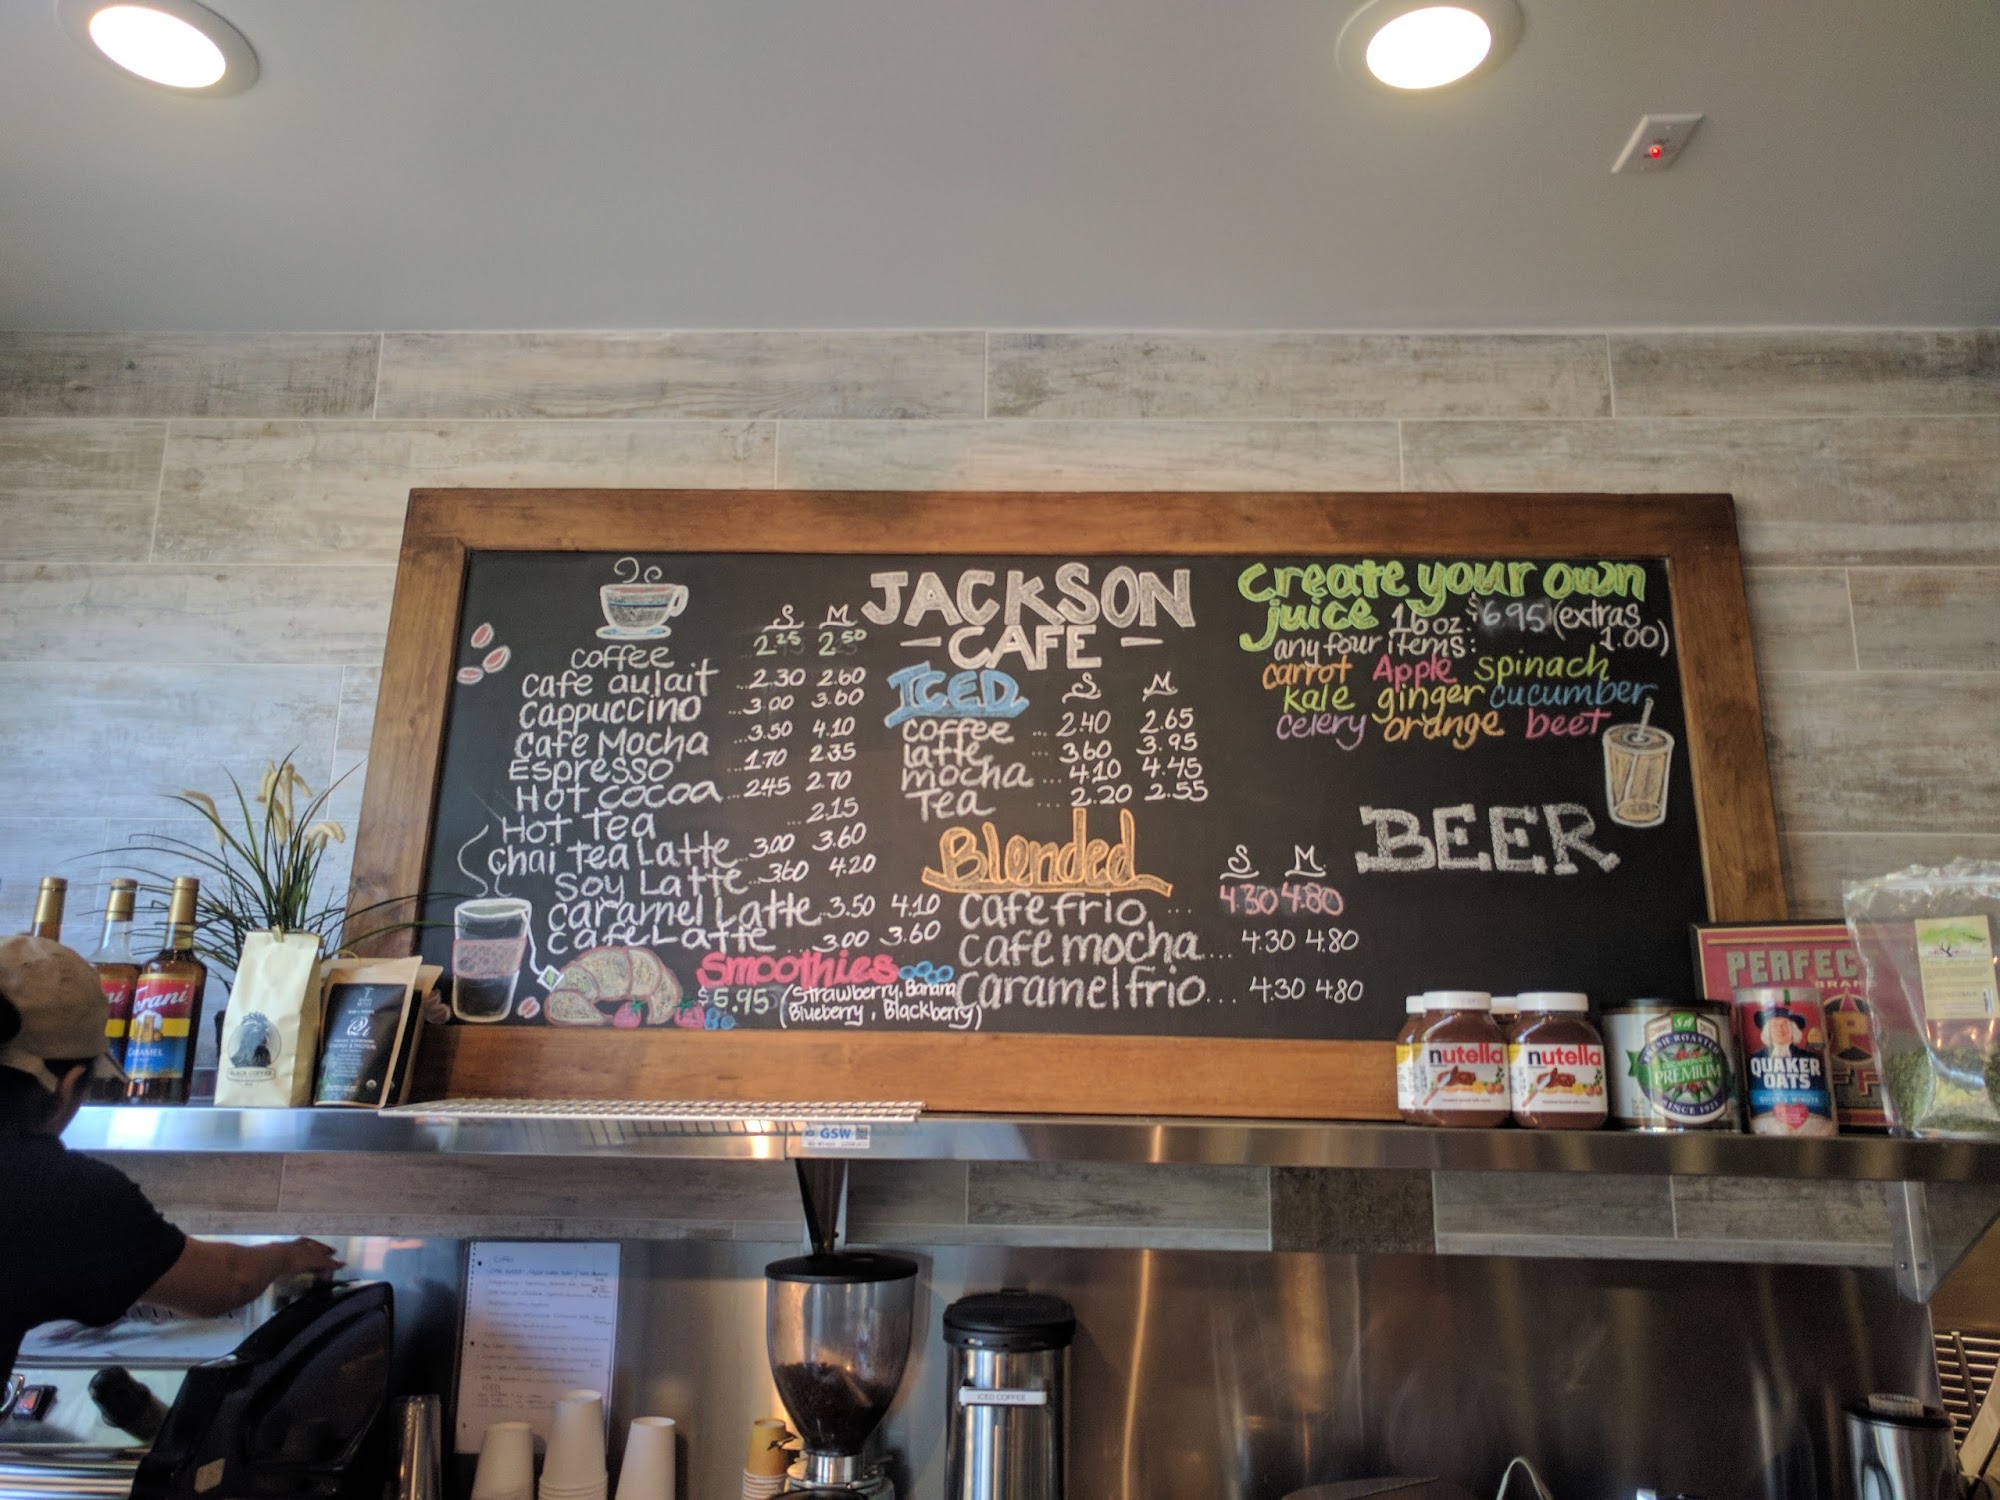 JACKSON
- CAFE -
S M
coffee 2.25 2.50
cafe aulait ...2.30 2.60
Cappuccino ...3.00 3.60
Cafe Mocha ...3.50 4.10
Espresso ...1.70 2.35
Hot cocoa ...2.45 2.70
Hot Tea ...2.15
Chai Tea Latte ...3.00 3.60
Soy Latte ...3.60 4.20
Caramel Latte ..3.50 4.10
Cafe Latte .... 3.00 3.60
Smoothies
$5.95 (Strawberry, Banana
Blueberry, Blackberry)
ICED S M
coffee ... 2.40 2.65
latte ... 3.60 3.95
mocha ... 4.10 4.45
Tea ... 2.20 2.55
Blended S M
Cafe frio ... 4.30 4.80
Cafe mocha .... 4.30 4.80
Caramel frio ... 4.30 4.80
Create your own
juice 16 oz. $6.95 (extras
any four items: 1.00)
carrot Apple spinach
kale ginger cucumber
celery orange beet
BEER
Torani
CARAMEL
BLACK COFFEE
nutella
nutella
FRESH ROASTED
PREMIUM
SINCE 1921
QUAKER
OATS
PERFEC
BRAND
GSW
Coffee
ICED
ICED COFFEE